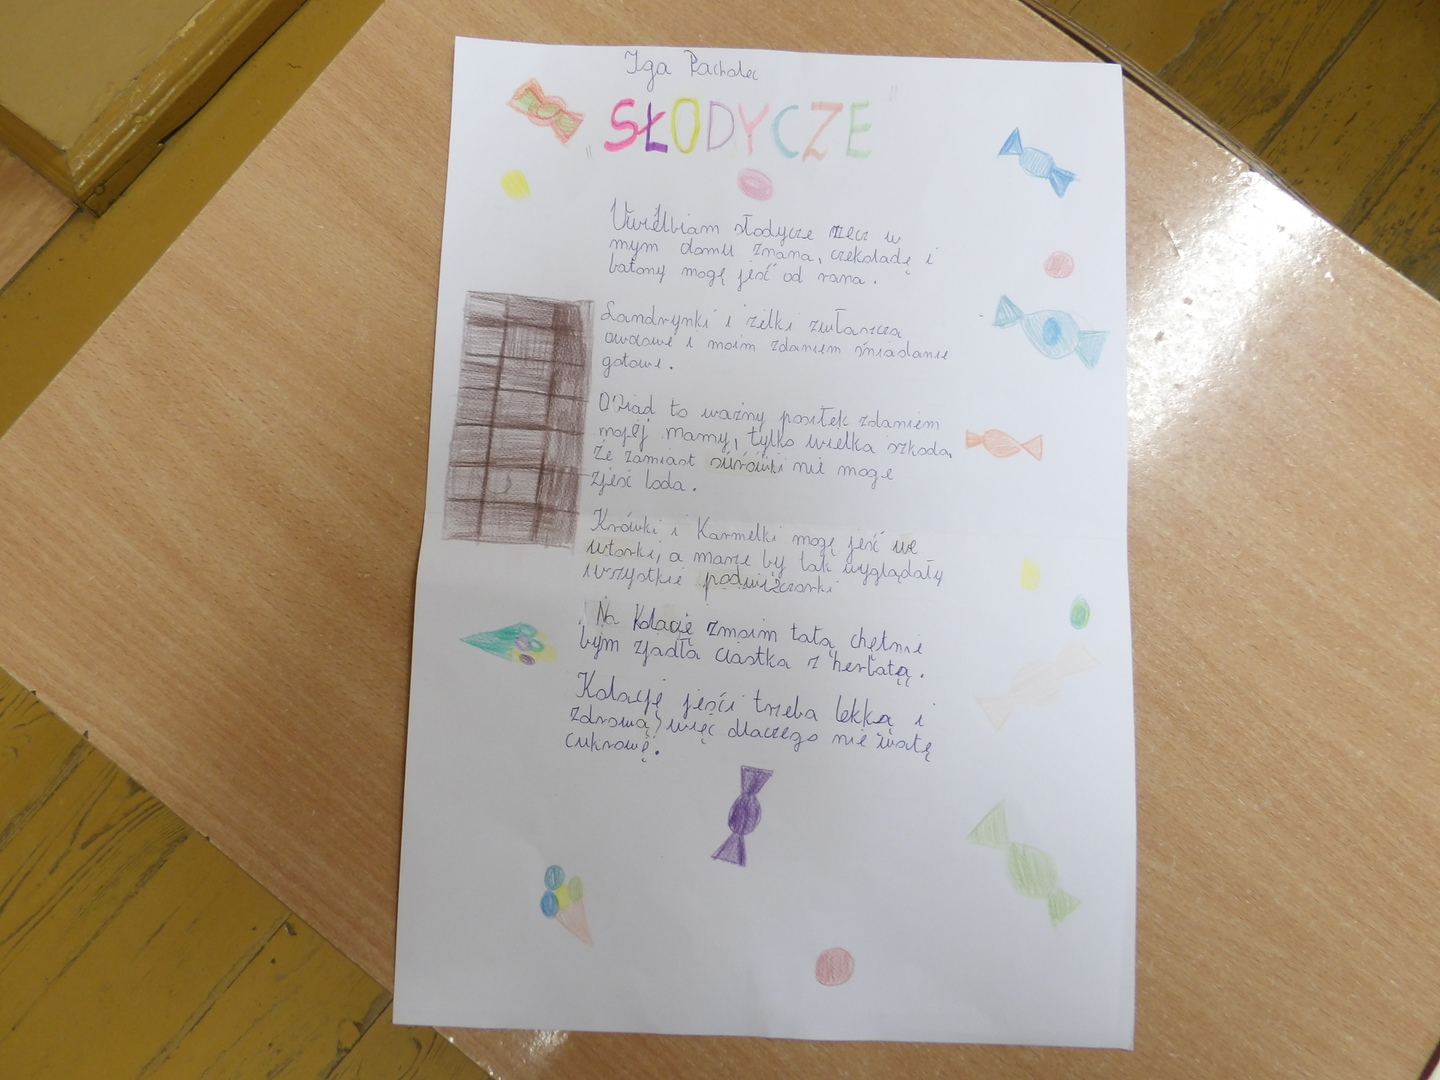 Iga Pacholec
"SŁODYCZE"
Uwielbiam słodycze rzecz w
mym domu znana, czekoladę i
batony mogę jeść od rana.
Landrynki i żelki zwłaszcza
owocowe i moim zdaniem śniadanie
gotowe.
Obiad to ważny posiłek zdaniem
mojej mamy, tylko wielka szkoda,
że zamiast surówki nie mogę
zjeść loda.
Krówki i Karmelki mogę jeść we
wtorki, a marzę by tak wyglądały
wszystkie podwieczorki
Na Kolację zmoim tatą chętnie
bym zjadła ciastka z herbatą.
Kolację jeści trzeba lekką i
zdrową, więc dlaczego nie watę
cukrową.